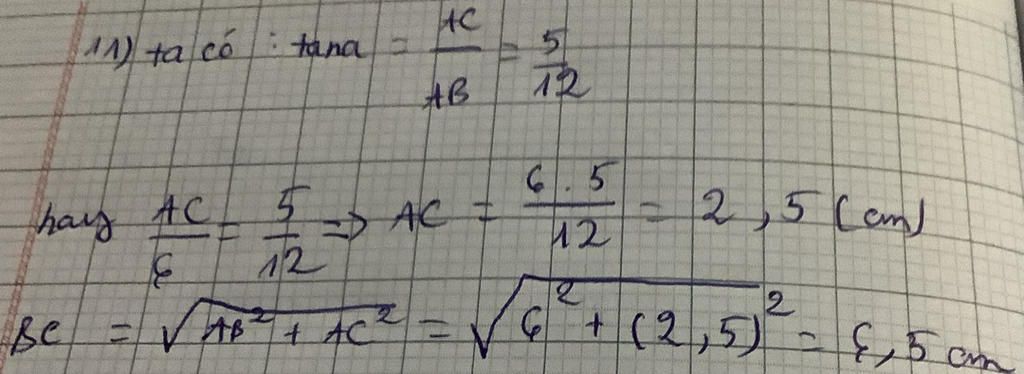 11) ta có : tana = AC/AB = 5/12
hay AC/6 = 5/12 => AC = 6 . 5/12 = 2,5 (cm)
BC = √(AB² + AC²) = √(6² + (2,5)²) = 6,5 cm